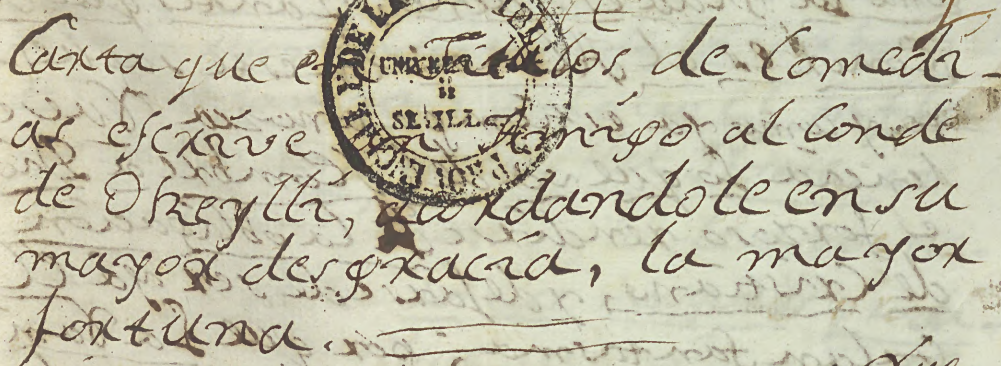 Carta que en Titulos de Comedi-
as escrive un Amigo al Conde
de Oreylli, acordandole en su
mayor desgracia, la mayor
fortuna.
UNIVER
DE
SEVILLA